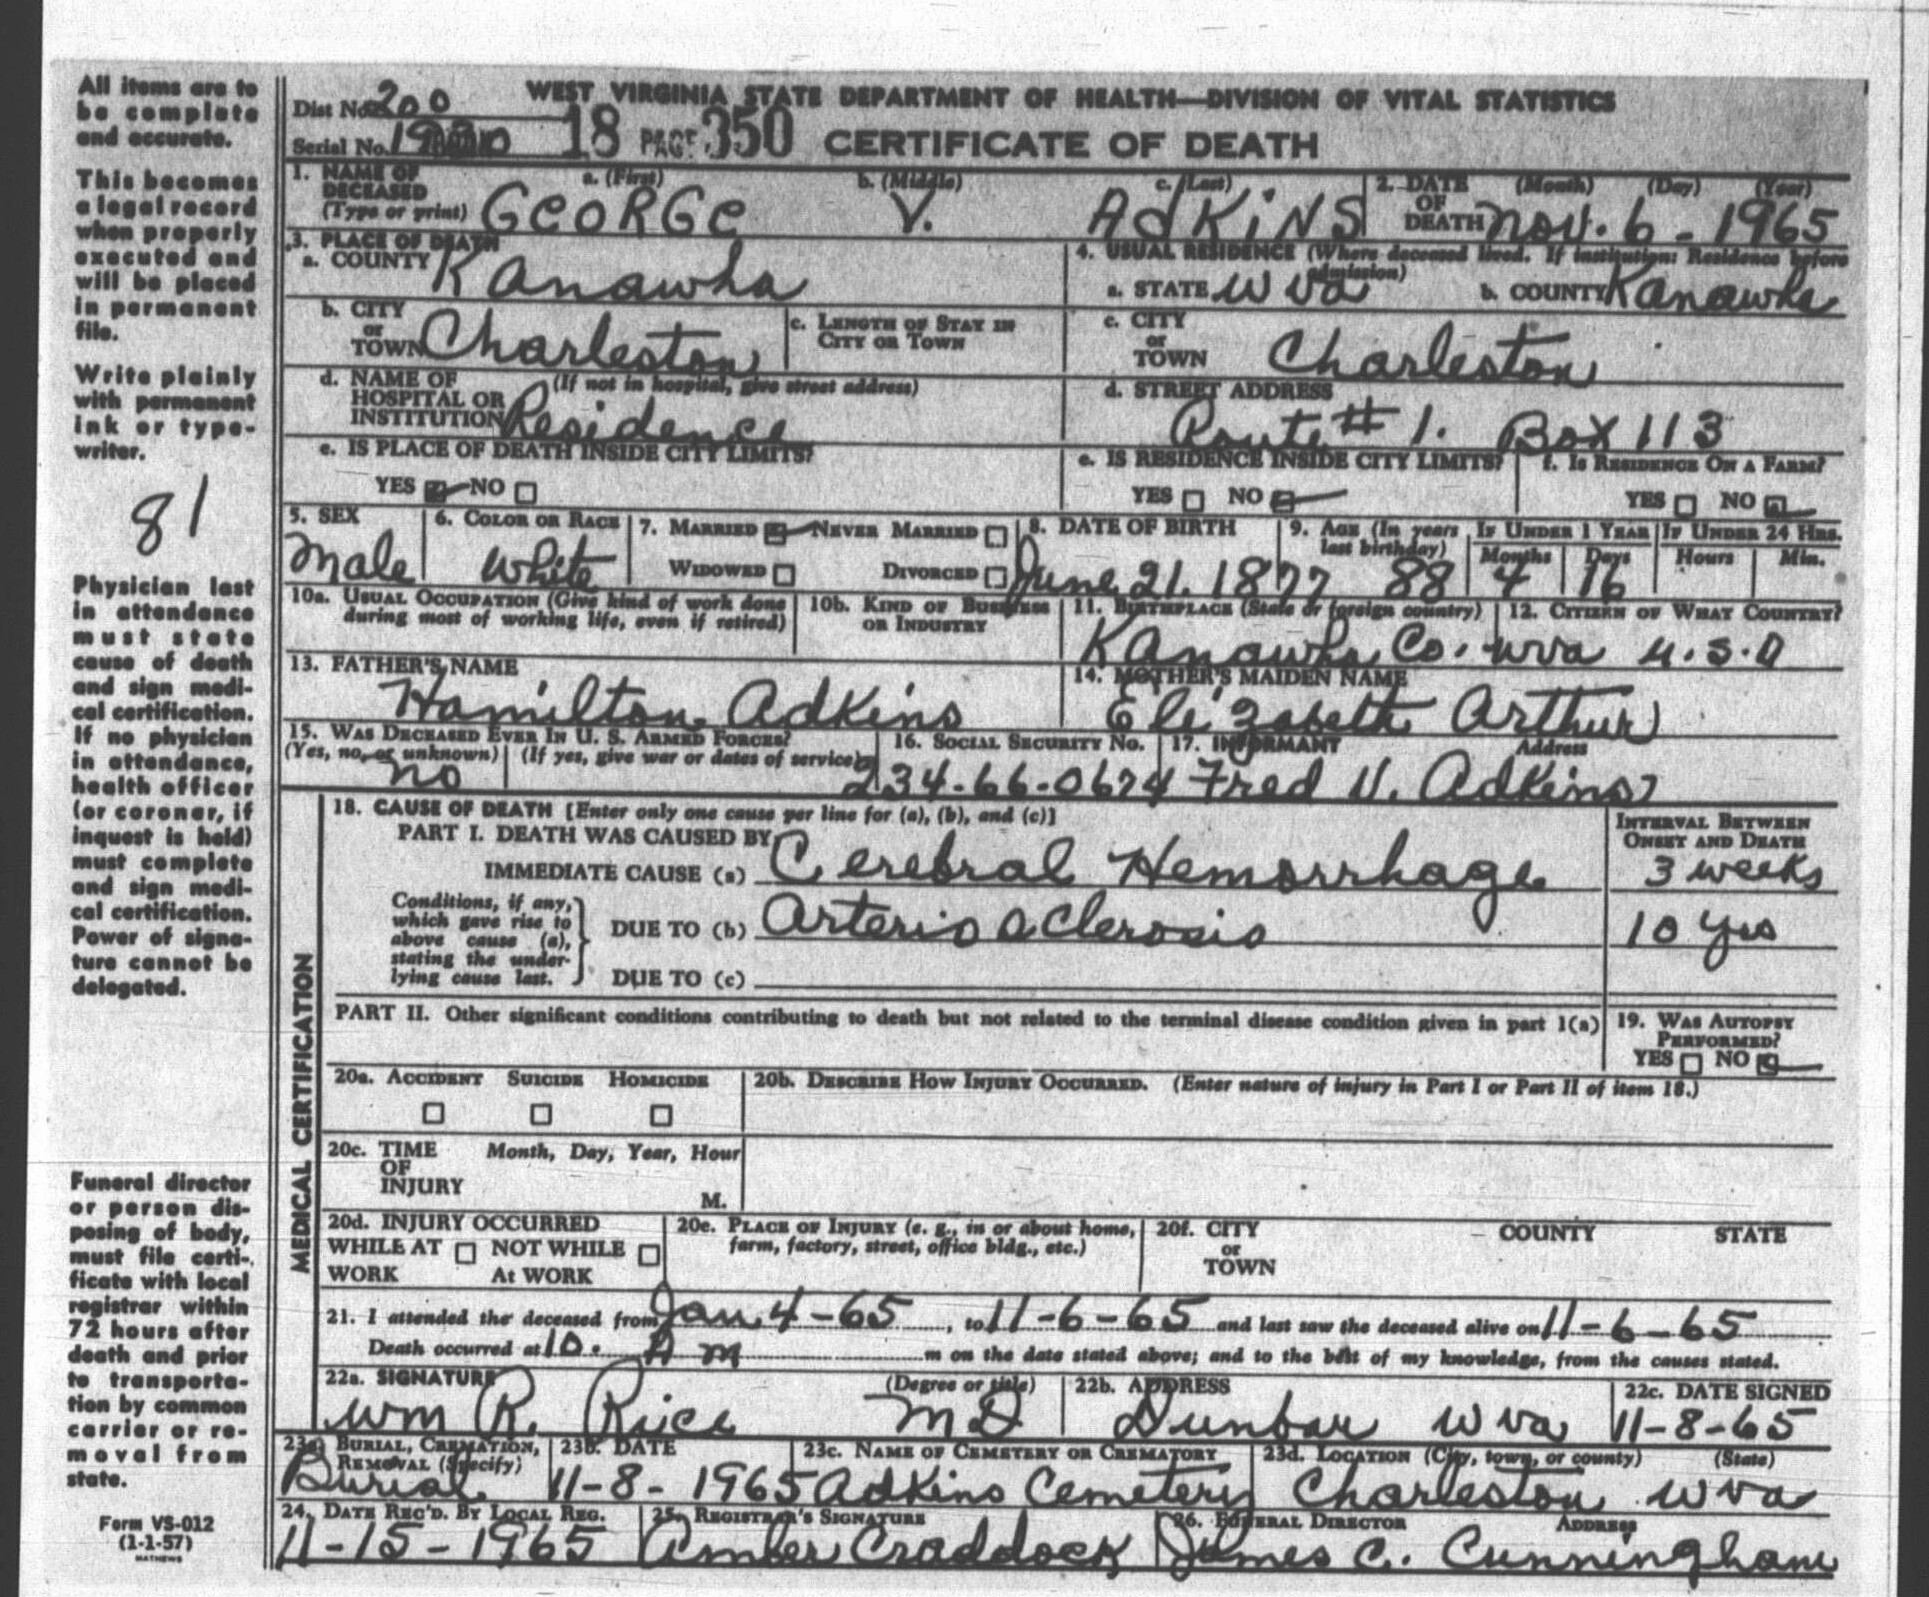 All items are to
be complete
and accurate.
This becomes
a legal record
when properly
executed and
will be placed
in permanent
file.
Write plainly
with permanent
ink or type-
writer.
81
Physician last
in attendance
must state
cause of death
and sign medi-
cal certification.
If no physician
in attendance,
health officer
(or coroner, if
inquest is held)
must complete
and sign medi-
cal certification.
Power of signa-
ture cannot be
delegated.
Funeral director
or person dis-
posing of body,
must file certi-
ficate with local
registrar within
72 hours after
death and prior
to transporta-
tion by common
carrier or re-
moval from
state.
Form VS-012
(1-1-57)
MATHEWS
WEST VIRGINIA STATE DEPARTMENT OF HEALTH—DIVISION OF VITAL STATISTICS
Dist No. 200
Serial No. 18 PAGE 350 CERTIFICATE OF DEATH
1. NAME OF DECEASED (Type or print) a. (First) b. (Middle) c. (Last) GEORGE V. ADKINS
2. DATE OF DEATH (Month) (Day) (Year) Nov. 6 - 1965
3. PLACE OF DEATH
a. COUNTY Kanawha
4. USUAL RESIDENCE (Where deceased lived. If institution: Residence before admission)
a. STATE W Va b. COUNTY Kanawha
b. CITY or TOWN Charleston c. LENGTH OF STAY IN CITY OR TOWN
c. CITY or TOWN Charleston
d. NAME OF HOSPITAL OR INSTITUTION (If not in hospital, give street address) Residence
d. STREET ADDRESS Route # 1. Box 113
e. IS PLACE OF DEATH INSIDE CITY LIMITS?
YES NO
e. IS RESIDENCE INSIDE CITY LIMITS?
YES NO
f. IS RESIDENCE ON A FARM?
YES NO
5. SEX Male
6. COLOR OR RACE White
7. MARRIED NEVER MARRIED
WIDOWED DIVORCED
8. DATE OF BIRTH June 21. 1877
9. AGE (In years last birthday) 88
IF UNDER 1 YEAR Months 4 Days 16
IF UNDER 24 HRS. Hours Min.
10a. USUAL OCCUPATION (Give kind of work done during most of working life, even if retired)
10b. KIND OF BUSINESS OR INDUSTRY
11. BIRTHPLACE (State or foreign country) Kanawha Co. wva
12. CITIZEN OF WHAT COUNTRY? U.S.A
13. FATHER'S NAME Hamilton Adkins
14. MOTHER'S MAIDEN NAME Elizabeth Arthur
15. WAS DECEASED EVER IN U. S. ARMED FORCES?
(Yes, no, or unknown) (If yes, give war or dates of service)
no
16. SOCIAL SECURITY No. 234-66-0674
17. INFORMANT Address
Fred V. Adkins
MEDICAL CERTIFICATION
18. CAUSE OF DEATH [Enter only one cause per line for (a), (b), and (c)]
PART I. DEATH WAS CAUSED BY
IMMEDIATE CAUSE (a) Cerebral Hemorrhage
INTERVAL BETWEEN ONSET AND DEATH
3 weeks
Conditions, if any, which gave rise to above cause (a), stating the under-lying cause last.
DUE TO (b) Arterio sclerosis 10 yrs
DUE TO (c)
PART II. Other significant conditions contributing to death but not related to the terminal disease condition given in part 1(a)
19. WAS AUTOPSY PERFORMED?
YES NO
20a. ACCIDENT SUICIDE HOMICIDE
20b. DESCRIBE HOW INJURY OCCURRED. (Enter nature of injury in Part I or Part II of item 18.)
20c. TIME OF INJURY Month, Day, Year, Hour
M.
20d. INJURY OCCURRED
WHILE AT WORK NOT WHILE At WORK
20e. PLACE OF INJURY (e. g., in or about home, farm, factory, street, office bldg., etc.)
20f. CITY or TOWN COUNTY STATE
21. I attended the deceased from Jan 4-65, to 11-6-65 and last saw the deceased alive on 11-6-65
Death occurred at 10. A m m on the date stated above; and to the best of my knowledge, from the causes stated.
22a. SIGNATURE (Degree or title) Wm R. Rice MD
22b. ADDRESS Dunbar W Va
22c. DATE SIGNED 11-8-65
23a. BURIAL, CREMATION, REMOVAL (Specify) Burial
23b. DATE 11-8-1965
23c. NAME OF CEMETERY OR CREMATORY Adkins Cemetery
23d. LOCATION (City, town, or county) (State) Charleston W Va
24. DATE REC'D. BY LOCAL REG. 11-15-1965
25. REGISTRAR'S SIGNATURE Amber Craddock
26. FUNERAL DIRECTOR ADDRESS James C. Cunningham